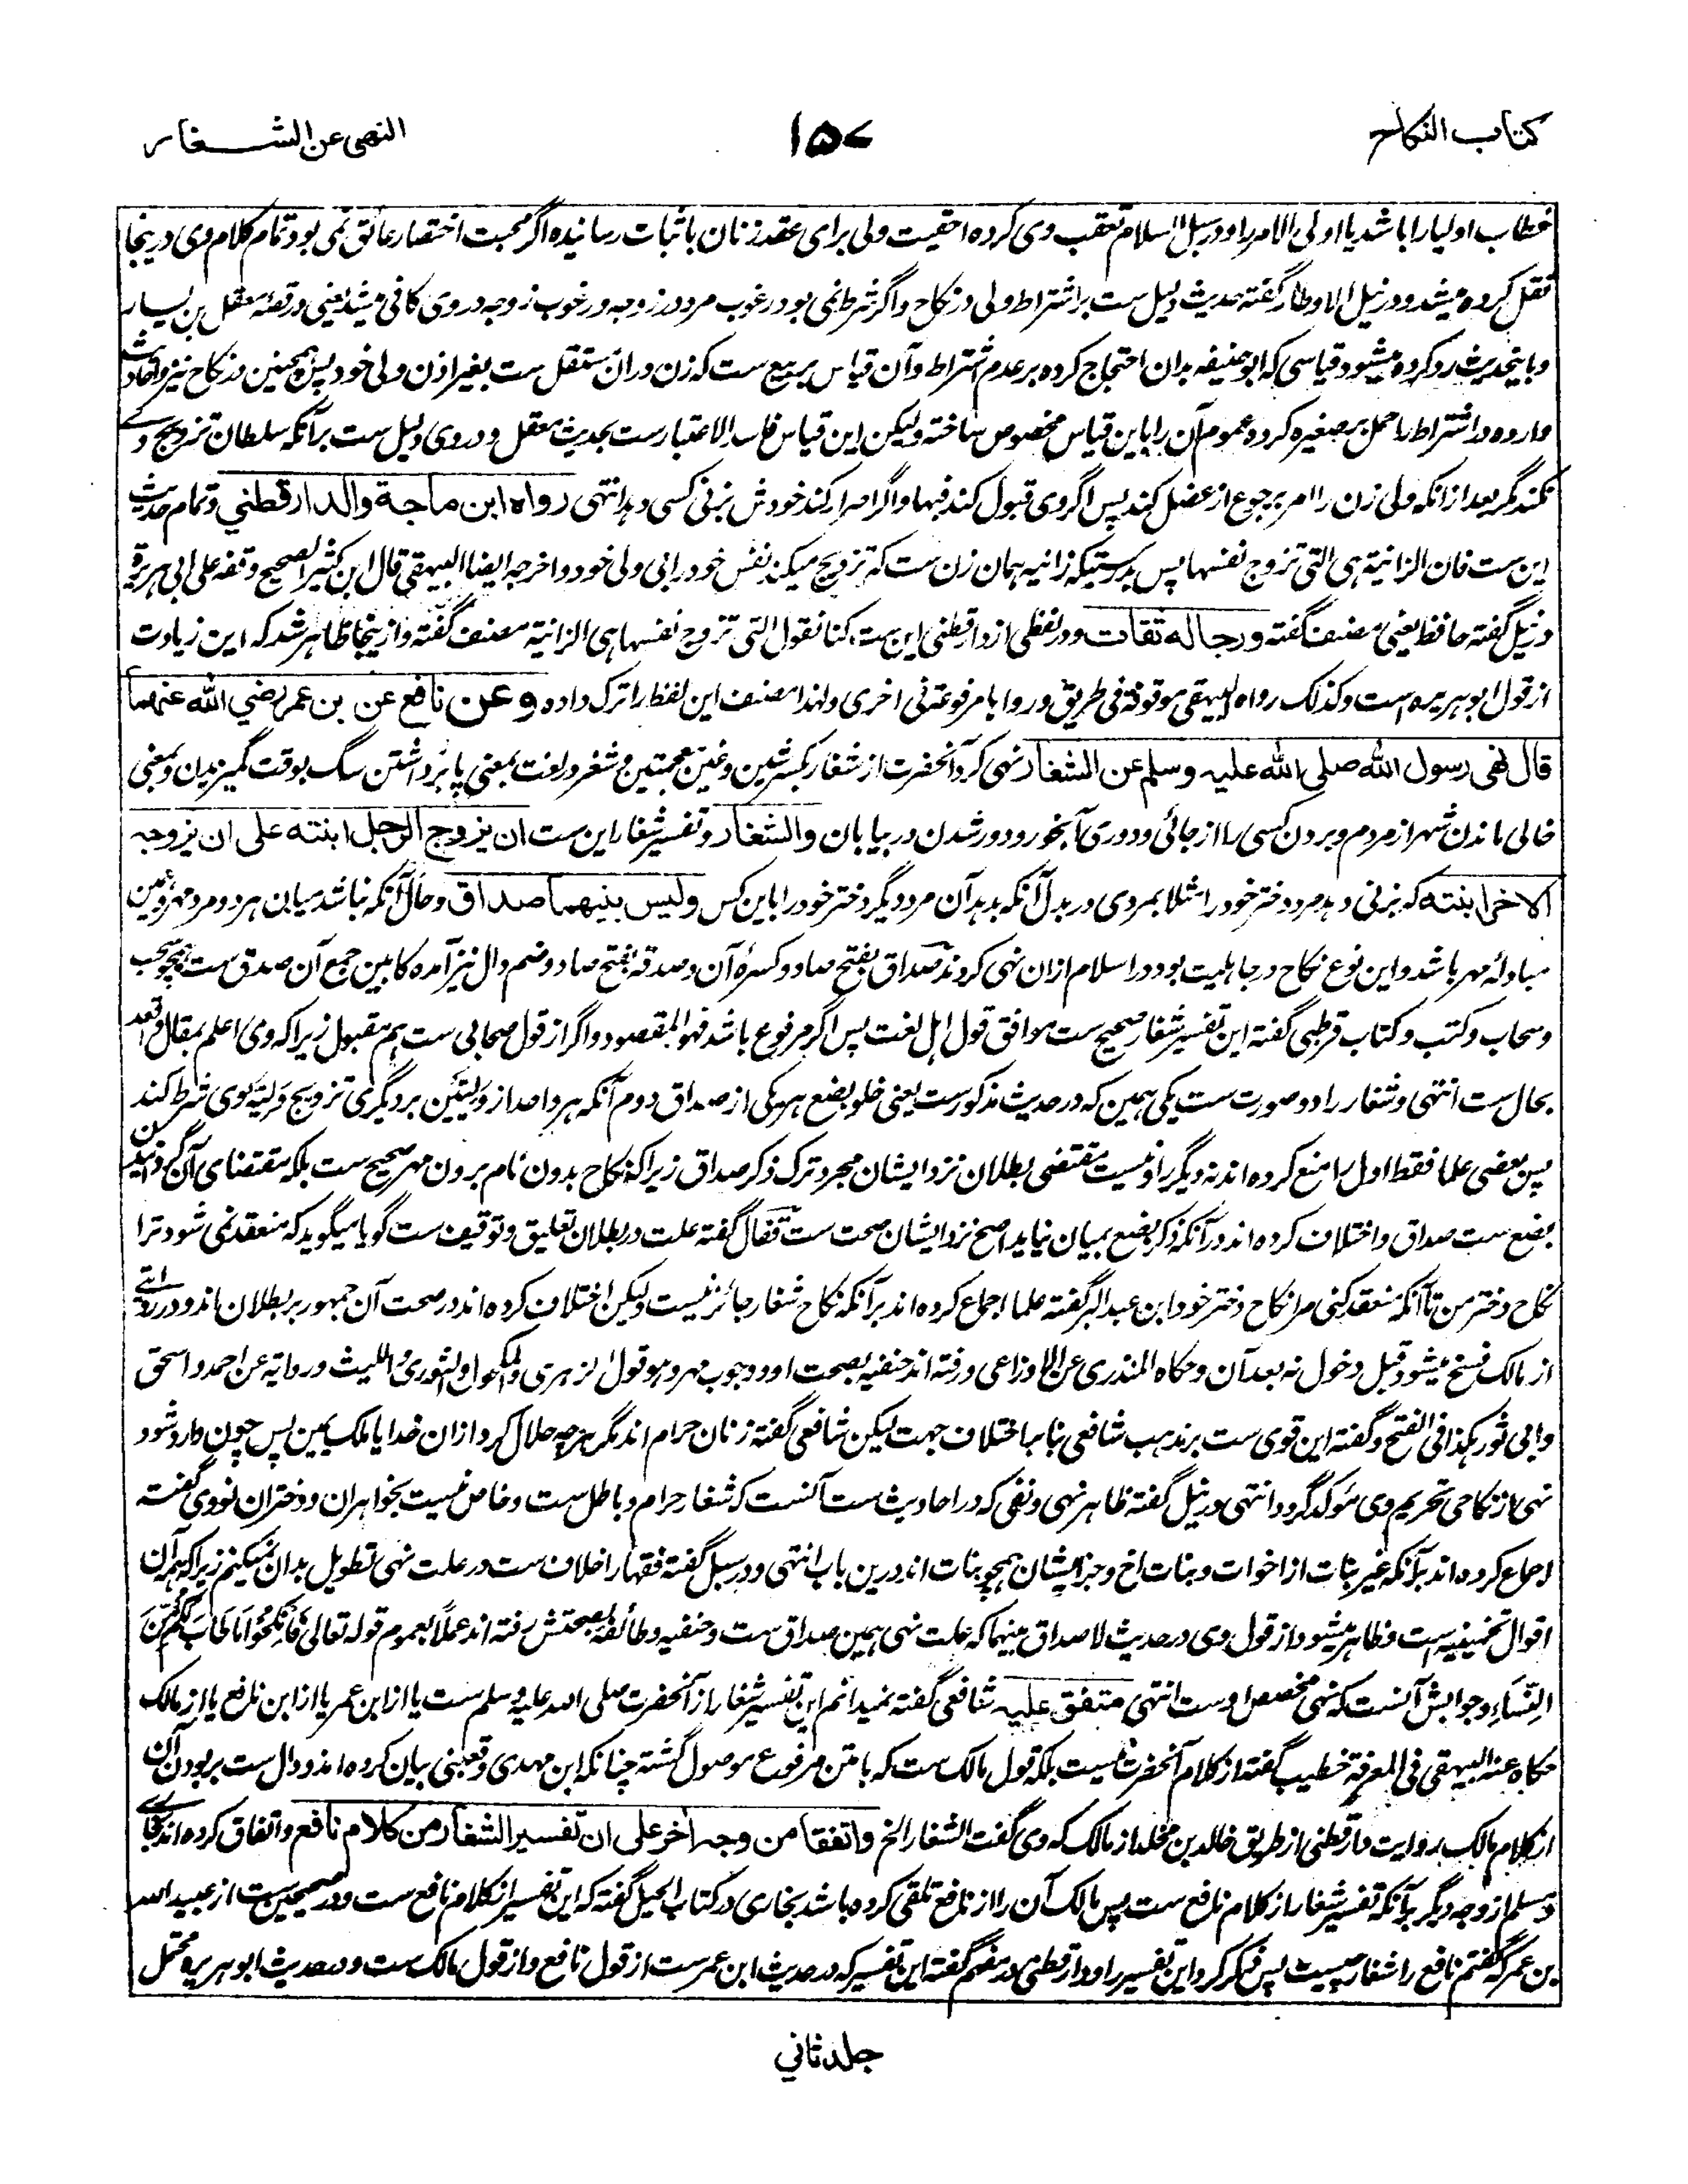 کتاب النکاح
۱۵۷
النهی عن الشغار
خطاب اولیا را باشد یا اولی الامر را و در سبل السلام تعقب وی کرده احقیت ولی برای عقد زنان باثبات رسانیده اگر محبت اختصار عائق نمی بود تمام کلام وی درینجا
نقل کرده میشد و در نیل الاوطار گفته حدیث دلیل ست بر اشتراط ولی در نکاح و اگر شرط نمی بود رغوب مرد در زوجه و رغوب زوجه در وی کافی میشد یعنی در قصهٔ معقل بن یسار
و باینحدیث رد کرده میشود قیاسی که ابو حنیفه بدان احتجاج کرده بر عدم اشتراط و آن قیاس بر بیع ست که زن در ان مستقل ست بغیر اذن ولی خود پس همچنین در نکاح نیز و احادیث
وارده در اشتراط را حمل بر صغیره کرد و عموم آن را باین قیاس مخصوص ساخته ولیکن این قیاس فاسد الاعتبار ست بحدیث معقل و در وی دلیل ست بر آنکه سلطان تزویج وے
نکند مگر بعد از انکه ولی زن را امر برجوع از عضل کند پس اگر وی قبول کند فبها و اگر اصرار کند خودش بزنی کسی دهد انتهی رواه ابن ماجة والدارقطني و تمام حدیث
این ست فان الزانیة هی التی تزوج نفسها پس بدرستیکه زانیه همان زن ست که تزویج میکند نفس خود را بی ولی خود و اخرجه ایضا البیهقی قال ابن کثیر الصحیح وقفه علی ابی هریرة
در نیل گفته حافظ یعنی مصنف گفته ورجاله ثقات و در لفظی از دارقطنی این ست کنا نقول التی تزوج نفسها هی الزانیة مصنف گفته و از ینجا ظاهر شد که این زیادت
از قول ابو هریره است و کذلک رواه البیهقی موقوفة فی طریق و رواها مرفوعة فی اخری و لهذا مصنف این لفظ را ترک داده وعن نافع عن بن عمر رضي الله عنهما
قال نهی رسول الله صلی الله علیه وسلم عن الشغار نهی کرد آنحضرت از شغار بکسر شین و غین معجمتین و شغر در لغت بمعنی پا برداشتن سگ بوقت گمیزیدن و بمعنی
خالی ماندن شهر از مردم و بردن کسی را از جائی و دوری آبخور و دور شدن در بیابان والشغار و تفسیر شغار این ست ان یزوج الرجل ابنته علی ان یزوجه
الاخر ابنته که بزنی دهد مرد دختر خود را مثلا بمردی در بدل آنکه بدهد آن مرد دیگر دختر خود را باین کس ولیس بینهما صداق و حال آنکه نباشد میان هر دو مرد مهر و همین
مبادله مهر باشد و این نوع نکاح در جاهلیت بود در اسلام ازان نهی کردند صداق بفتح صاد و کسره آن و صدقه بفتح صاد و ضم دال نیز آمده کابین جمع آن صدق ست همچو سحب
و سحاب و کتب و کتاب قرطبی گفته این تفسیر شغار صحیح ست موافق قول اهل لغت پس اگر مرفوع باشد فهو المقصود و اگر از قول صحابی ست هم مقبول زیرا که وی اعلم بمقال و اقعد
بحال ست انتهی و شغار را دو صورت ست یکی همین که در حدیث مذکور ست یعنی خلو بضع هر یکی از صداق دوم آنکه هر واحد از ولیتین بر دیگری تزویج ولیهٔ بوی شرط کند
پس بعضی علما فقط اول را منع کرده اند نه دیگر را و نیست مقتضی بطلان نزد ایشان مجرد ترک ذکر صداق زیرا که نکاح بدون نام بردن مهر صحیح ست بلکه مقتضای آن گردانیدن
بضع ست صداق و اختلاف کرده اند در آنکه ذکر بضع بمیان نیاید اصح نزد ایشان صحت ست قفال گفته علت در بطلان تعلیق و توقیف ست گویا میگوید که منعقد نمی شود ترا
نکاح دختر من تا آنکه منعقد کنی مرا نکاح دختر خود ابن عبد البر گفته علما اجماع کرده اند بر آنکه نکاح شغار جائز نیست ولیکن اختلاف کرده اند در صحت آن جمهور بر بطلان اند و در روایتے
از مالک فسخ میشود قبل دخول نه بعد آن و حکاه المنذری عن الاوزاعی و رفته اند حنفیه بصحت او و وجوب مهر و هو قول الزهری و مکحول و الثوری و اللیث و روایة عن احمد و اسحق
و ابی ثور هکذا فی الفتح و گفته این قوی ست بر مذهب شافعی بنابر اختلاف جهت لیکن شافعی گفته زنان حرام اند مگر هر چه حلال کرد ازان خدا یا ملک یمین پس چون وارد شود
نهی از نکاحی تحریم وی مؤکد گردد انتهی در نیل گفته ظاهر نهی و نفی که در احادیث ست آنست که شغار حرام و باطل ست و خاص نیست بخواهران و دختران نووی گفته
اجماع کرده اند بر آنکه غیر بنات از اخوات و بنات اخ و جز ایشان همچو بنات اند درین باب انتهی و در سبل گفته فقها را خلاف ست در علت نهی تطویل بدان نمیکنیم زیرا که همه آن
اقوال تخمینیه است و ظاهر میشود از قول وی در حدیث لا صداق بینهما که علت نهی همین صداق ست و حنفیه و طائفه بصحتش رفته اند عملا بعموم قوله تعالی فَانْکِحُوْا مَا طَابَ لَکُمْ مِّنَ
النِّسَاءِ و جوابش آنست که نهی مخصص اوست انتهی متفق علیه شافعی گفته نمیدانم این تفسیر شغار از آنحضرت صلی الله علیه و سلم ست یا از ابن عمر یا از ابن نافع یا از مالک
حکاه عنه البیهقی فی المعرفة خطیب گفته از کلام آنحضرت نیست بلکه قول مالک ست که با متن مرفوع موصول گشته چنانکه ابن مهدی و قعنبی بیان کرده اند و دال ست بر بودن آن
از کلام مالک روایت دارقطنی از طریق خالد بن مخلد از مالک که وی گفت الشغار الخ واتفقا من وجه اخر علی ان تفسیر الشغار من کلام نافع و اتفاق کرده اند بخاری
و مسلم از وجه دیگر بر آنکه تفسیر شغار از کلام نافع ست پس مالک آن را از نافع تلقی کرده باشد بخاری در کتاب الحیل گفته که این تفسیر از کلام نافع ست و در صحیحین ست از عبید الله
بن عمر که گفتم نافع را شغار چیست پس ذکر کرد این تفسیر را و دارقطنی در مفهم گفته این تفسیر که در حدیث ابن عمر ست از قول نافع و از قول مالک ست و در حدیث ابو هریره محتمل
جلد ثاني